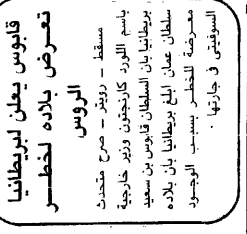 قابوس يعلن لبريطانيا
تعرض بلاده لخطر
الروس
مسقط - رويتر - صرح متحدث
باسم اللورد كارنجتون وزير خارجية
بريطانيا بأن السلطان قابوس بن سعيد
سلطان عمان ابلغ بريطانيا بأن بلاده
معرضة للخطر بسبب الوجود
السوفيتى فى جارتها .